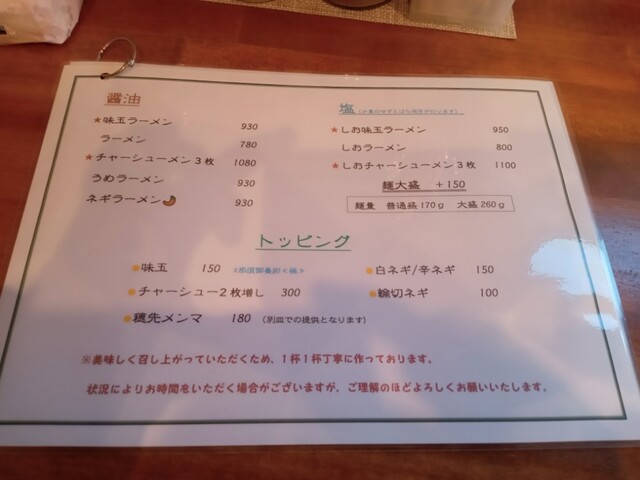 醤油
★味玉ラーメン 930
ラーメン 780
★チャーシューメン3枚 1080
うめラーメン 930
ネギラーメン 930
塩
★しお味玉ラーメン 950
しおラーメン 800
★しおチャーシューメン3枚 1100
麺大盛 +150
麺量 普通盛170g 大盛260g
トッピング
味玉 150
チャーシュー2枚増し 300
穂先メンマ 180 (別皿での提供となります)
白ネギ/辛ネギ 150
輪切ネギ 100
※美味しく召し上がっていただくため、1杯1杯丁寧に作っております。
状況によりお時間をいただく場合がございますが、ご理解のほどよろしくお願いいたします。